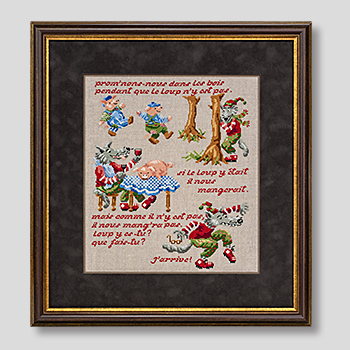 prom'nons-nous dans les bois
pendant que le loup n'y est pas.
si le loup y était
il nous
mangerait.
mais comme il n'y est pas
il nous mang'ra pas.
loup y es-tu?
que fais-tu?
J'arrive!